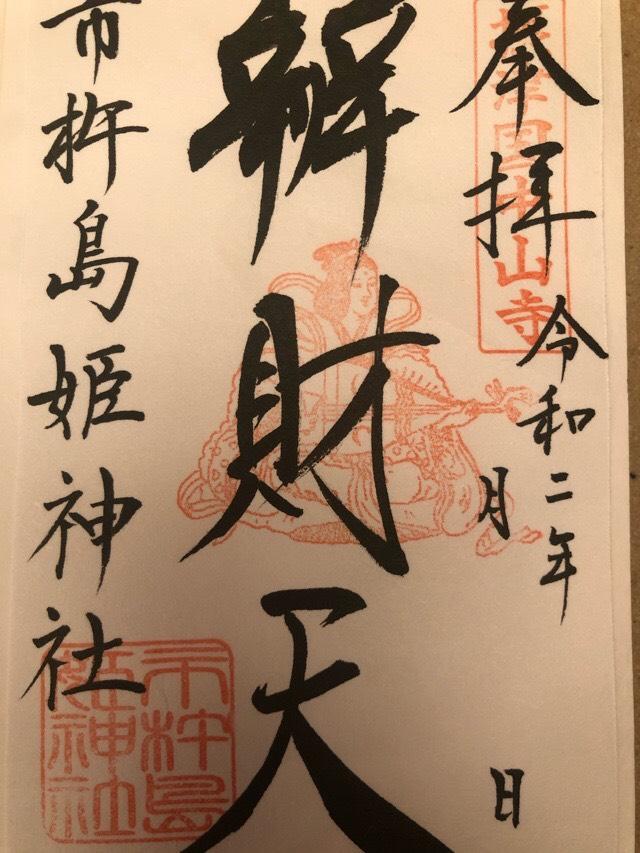 奉拝
津国本山寺
令和二年
月
日
辨財天
市杵島姫神社
市杵島
姫神社